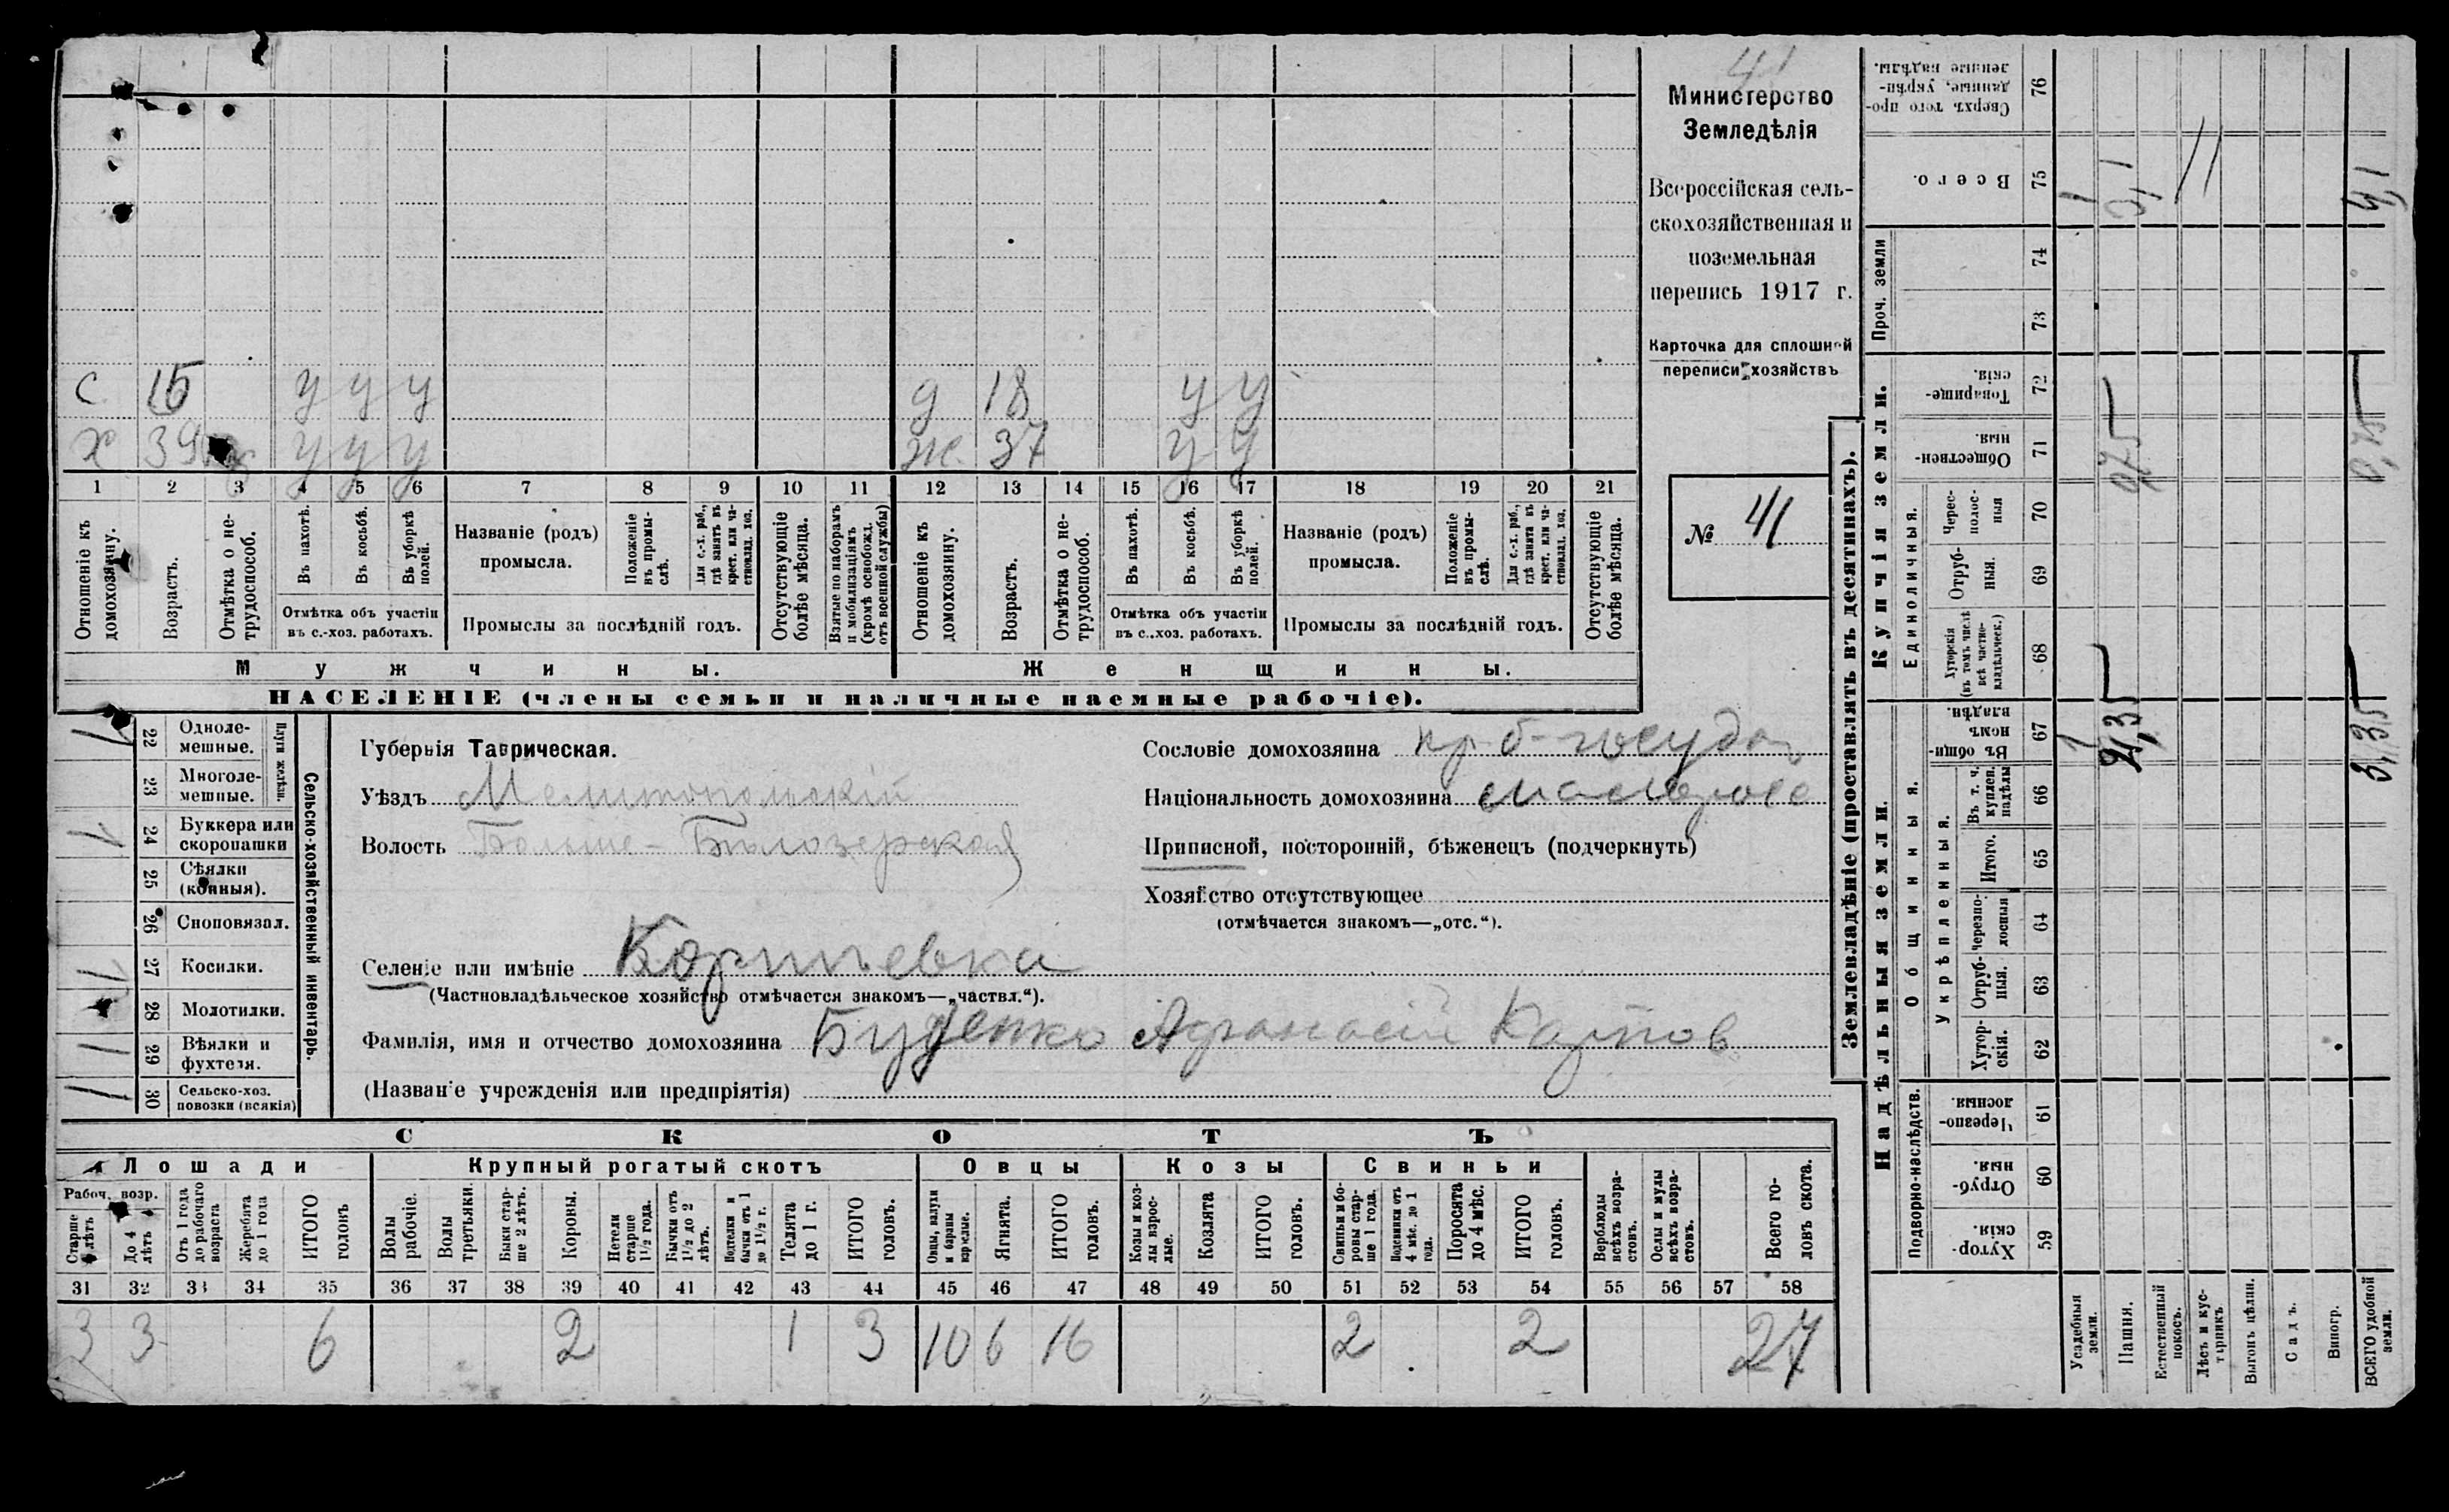 41
Министерство
Земледѣлія
Всероссійская сель-
скохозяйственная и
поземельная
перепись 1917 г.
Карточка для сплошной
переписи хозяйствъ
№ 41
с 15 у у у д 18 у у
х 39 у у у ж 37 у у
1 2 3 4 5 6 7 8 9 10 11 12 13 14 15 16 17 18 19 20 21
Отношеніе къ домохозяину.
Возрастъ.
Отмѣтка о не-трудоспособ.
Въ пахотѣ.
Въ косьбѣ.
Въ уборкѣ полей.
Отмѣтка объ участіи
въ с.-хоз. работахъ.
Названіе (родъ)
промысла.
Положеніе въ промы-слѣ.
Для с.-х. раб., гдѣ занятъ въ крест. или ча-стновлад. хоз.
Промыслы за послѣдній годъ.
Отсутствующіе болѣе мѣсяца.
Взятые по наборамъ и мобилизаціямъ (кромѣ освобожд. отъ военной службы)
Отношеніе къ домохозяину.
Возрастъ.
Отмѣтка о не-трудоспособ.
Въ пахотѣ.
Въ косьбѣ.
Въ уборкѣ полей.
Отмѣтка объ участіи
въ с.-хоз. работахъ.
Названіе (родъ)
промысла.
Положеніе въ промы-слѣ.
Для с.-х. раб., гдѣ занята въ крест. или ча-стновлад. хоз.
Промыслы за послѣдній годъ.
Отсутствующіе болѣе мѣсяца.
Мужчины. Женщины.
НАСЕЛЕНІЕ (члены семьи и наличные наемные рабочіе).
Сельско-хозяйственный инвентарь.
Плуги желѣзн.
1 22 Одноле-мешные.
23 Многоле-мешные.
1 24 Буккера или скоропашки
25 Сѣялки (конныя).
26 Сноповязал.
1 27 Косилки.
28 Молотилки.
1 29 Вѣялки и фухтеля.
1 30 Сельско-хоз. повозки (всякія)
Губернія Таврическая.
Уѣздъ Мелитопольскій
Волость Больше-Бѣлозерская
Селеніе или имѣніе
(Частновладѣльческое хозяйство отмѣчается знакомъ—„частвл.“).
Фамилія, имя и отчество домохозяина Буденко Афанасій Карпов
(Названіе учрежденія или предпріятія)
Сословіе домохозяина кр. б-государ
Національность домохозяина малоросс
Приписной, посторонній, бѣженецъ (подчеркнуть)
Хозяйство отсутствующее
(отмѣчается знакомъ—„отс.“).
СКОТЪ
Лошади Крупный рогатый скотъ Овцы Козы Свиньи
Рабоч. возр.
Старше 4 лѣтъ
До 4 лѣтъ
Отъ 1 года до рабочаго возраста
Жеребята до 1 года
ИТОГО головъ
Волы рабочіе.
Волы третьяки.
Быки стар-ше 2 лѣтъ.
Коровы.
Нетели старше 1½ года.
Бычки отъ 1½ до 2 лѣтъ.
Подтелки и бычки отъ 1 до 1½ г.
Телята до 1 г.
ИТОГО головъ.
Овцы, валухи и бараны взрослые.
Ягнята.
ИТОГО головъ.
Козы и коз-лы взрос-лые.
Козлята
ИТОГО головъ.
Свиньи и бо-ровы стар-ше 1 года.
Подсвинки отъ 4 мѣс. до 1 года.
Поросята до 4 мѣс.
ИТОГО головъ.
Верблюды всѣхъ возра-стовъ.
Ослы и мулы всѣхъ возра-стовъ.
Всего го-ловъ скота.
31 32 33 34 35 36 37 38 39 40 41 42 43 44 45 46 47 48 49 50 51 52 53 54 55 56 57 58
3 3 6 2 1 3 10 6 16 2 2 27
Землевладѣніе (проставлять въ десятинахъ).
Надѣльныя земли. Купчія земли. Проч. земли
Подворно-наслѣдств. Общинныя. Единоличныя.
Укрѣпленныя.
59 Хутор-скія.
60 Отруб-ныя.
61 Черезпо-лосныя.
62 Хутор-скія.
63 Отруб-ныя.
64 Черезпо-лосныя
65 Итого.
66 Въ т. ч. куплен. надѣлы
67 Въ общи-номъ владѣн.
68 Хуторскія (въ томъ числѣ всѣ частно-владѣльческ.)
69 Отруб-ныя.
70 Черес-полос-ныя
71 Обществен-ныя.
72 Товарище-скія.
73
74
75 Всего.
76 Сверхъ того про-данные, укрѣп-ленные надѣлы.
Усадебныя земли. 1 1
Пашня. 2,35 0,75 3,1
Естественный покосъ.
Лѣсъ и кус-тарникъ.
Выгонъ цѣлин.
Садъ.
Виногр.
ВСЕГО удобной земли. 3,35 0,75 4,1